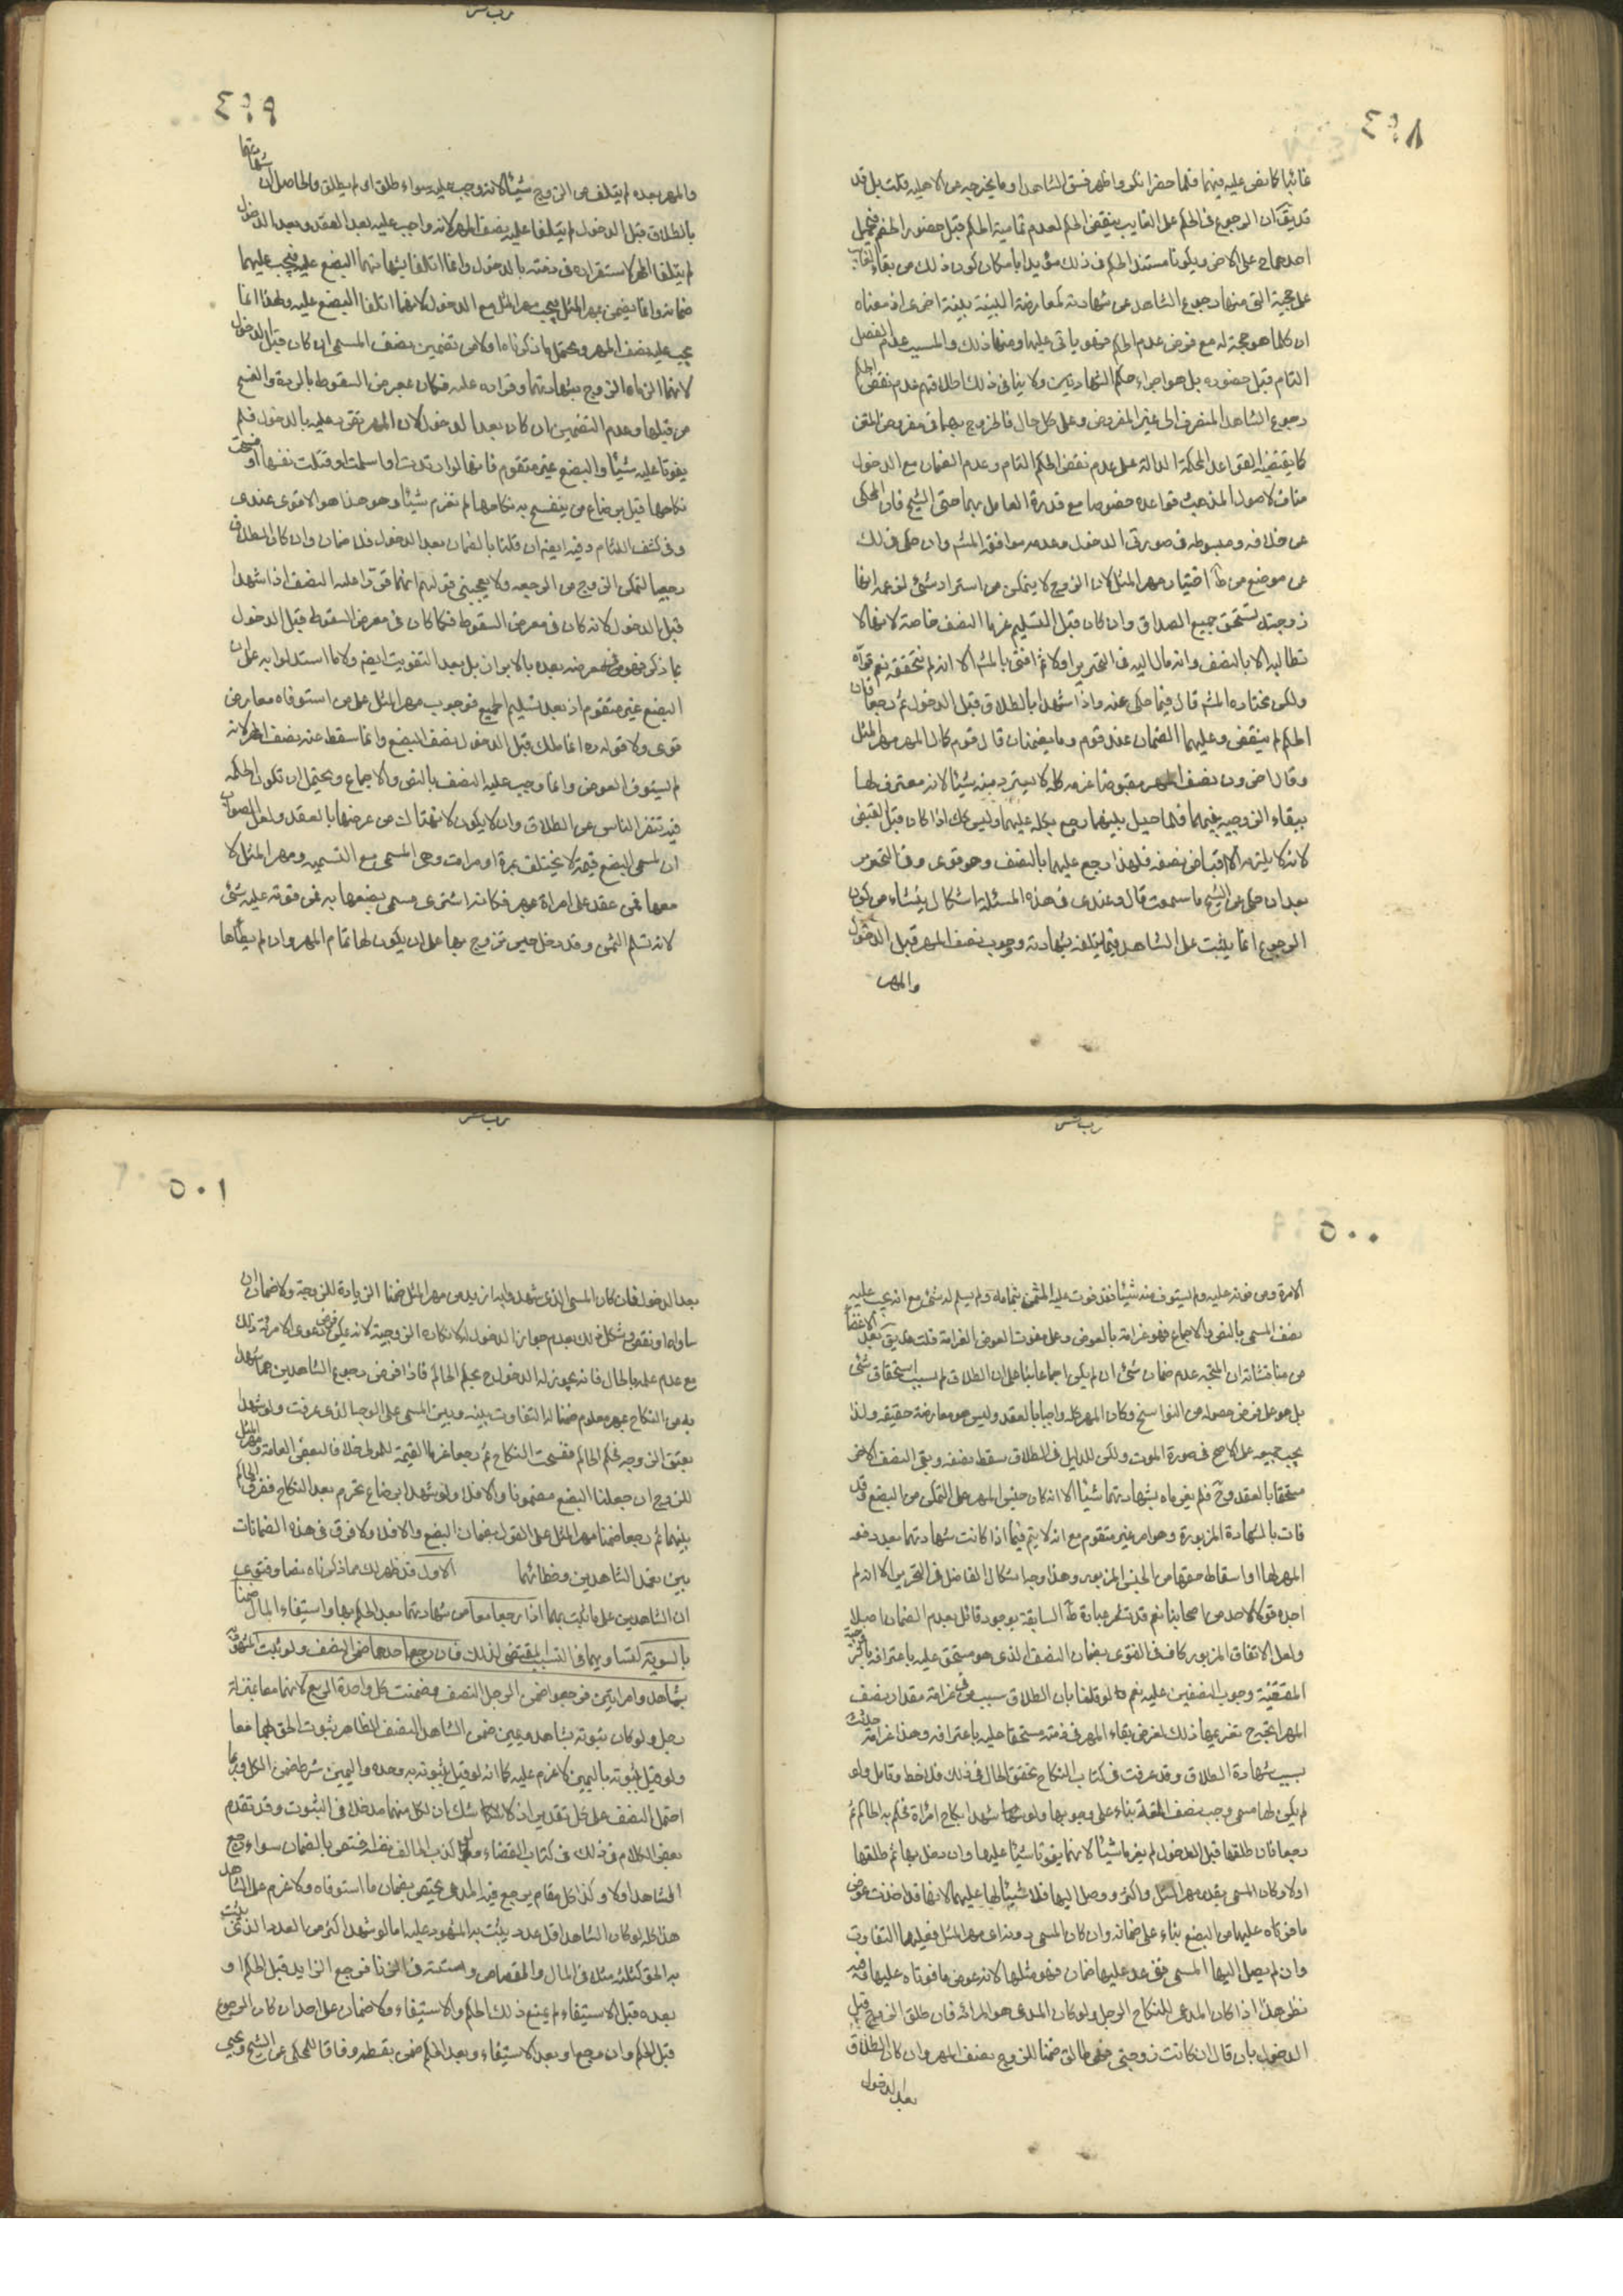 ٤٩٨
غائبا كما نص عليه فيهما فلما حضر انكر واظهر فسق الشاهد او ما يخرجه عن الاهليه قلت بل قد
قد يق ان الرجوع في الحكم على الغايب ينقض الحكم لعدم تمامية الحكم قبل حضور الخصم فيحمل
احدهما على الاخر ويكونا مستند الحكم في ذلك مؤيدا بامكان كون ذلك من بقاء الغايب
على حجية التي منها رجوع الشاهد عن شهادته كمعارضة البينة ببينة اخرى اذ معناه
ان كلما هو حجة له مع فرض عدم الحكم فهو ياتي عليها ومنها ذلك والمسبب عدم الفصل
التام قبل حضوره بل هو اجراء حكم الشهادتين ولا ينافي ذلك اطلاقهم عدم نقض الحكم
رجوع الشاهد المنصرف الى غير المفروض وعلى كل حال فالخروج بهما في مفروض المتن
كما يقتضيه القواعد المحكمة الدالة على عدم نقض الحكم التام وعدم الضمان مع الدخول
مناف لاصول المذهب وقواعده خصوصا مع قدرة العامل بهما حتى الشيخ فان المحكى
عن خلافه ومبسوطه في صورتي الدخول وعدمه موافقة المش وان حكى في لك
عن موضع من ط اختيار مهر المثل لان الزوج لا يتمكن من استرداد شئ لزعمه انها
زوجته تستحق جميع الصداق وان كان قبل التسليم غرما النصف خاصة لانها لا
تطالبه الا بالنصف وانه مال اليه في التحرير اولا ثم افتى بالمش الا انه لم نتحققه نعم قواه
ولكن مختاره المش قال فيما حكى عنه واذا شهدا بالطلاق قبل الدخول ثم رجعا فان
الحكم لم ينقض وعليهما الضمان عند قوم وما يضمنان قال قوم كمال المهر مهر المثل
وقال اخرون نصف المهر مقبوضا غرمه كله لا يسترد منه شيئا لانه معترف لها
ببقاء الزوجيه بينهما فلما حيل بينهما رجع بكله عليهما وليس كك اذا كان قبل القبض
لانه لا يلزمه الا اقباض نصفه فلهذا رجع عليهما بالنصف وهو قوى وفي التحرير
بعد ان حكى عن الشيخ ما سمعت قال وعندى في هذه المسئلة اشكال ينشاء من كون
الرجوع انما يثبت على الشاهد فيما يتلفه بشهادته ووجوب نصف المهر قبل الدخول
والمهر
٤٩٩
والمهر بعده لم يتلف من الزوج شيئا لانه وجب عليه سواء طلق او لم يطلق والحاصل ان شهادتهما
بالطلاق قبل الدخول لم يتلفا عليه نصف المهر لانه واجب عليه بعد العقد وبعد الدخول
لم يتلفا المهر لاستقراره في ذمته بالدخول وانما اتلفا بشهادتهما البضع عليه فيجب عليهما
ضمانه وانما يضمن بمهر المثل فيجب مهر المثل مع الدخول لانهما اتلفا البضع عليه ولهذا انما
يجب عليه نصف المهر ويحتمل ما ذكرناه اولا من تضمين نصف المسمى ان كان قبل الدخول
لانهما الزماه الزوج بشهادتهما وقرراه عليه فكان بمعرض السقوط بالردة والفسخ
من قبلها وعدم التضمين ان كان بعد الدخول لان المهر تقرر عليه بالدخول فلم
يفوتا عليه شيئا والبضع غير متقوم فانها لو ارتدت او اسلمت او قتلت نفسها او فسخت
نكاحها قبل برضاع من ينفسخ به نكاحها لم تغرم شيئا وهو هذا هو الاقوى عندى
وفي كشف اللثام وفيه ايضا ان قلنا بالضمان بعد الدخول فلا ضمان وان كان الطلاق
رجعيا لتمكن الزوج من الرجعه ولا يعجبني قولهم انهما قررا عليه النصف اذا شهدا
قبل الدخول لانه كان في معرض السقوط فكما كان في معرض السقوط قبل الدخول
بما ذكر فهو في معرضه بعده بالابراء بل بعد التفويت ايضا ولا ما استدلوا به على ان
البضع غير متقوم اذ بعد تسليم الجميع فوجوب مهر المثل على من استوفاه معارض
قوى ولا قوله ره انما ملك قبل الدخول نصف البضع وانما سقط عنه نصف المهر لانه
لم يستوف العوض وانما وجب عليه النصف بالنص والاجماع ويحتمل ان تكون الحكمه
فيه تنفر الناس عن الطلاق وان لا يكون لانتهاك من عرضها بالعقد ولعل الصواب
ان لمسمى البضع قيمة لا يختلف بمرة او مرات وهي المسمى مع التسميه ومهر المثل لا
معها فمن عقد على امراة بمهر فكانه اشترى مسمى بضعها به فمن فوته عليه شئ
لانه تسلم الثمن وقد دخل حين تزوج بها على ان يكون لها تمام المهر وان لم يطأها
٥٠٠
الا مرة ومن فوته عليه ولم يستوف منه شيئا فقد فوت عليه المثمن بتمامه ولم يسلم له شئ مع انه يجب عليه
نصف المسمى بالنص والاجماع فهو غرامة بالعوض وعلى مفوت العوض الغرامة قلت هل يق بعد الاغضاء
من مناقشاته ان المتجه عدم ضمان شئ ان لم يكن اجماعا بناء على ان الطلاق لم يسبب استحقاق شئ
بل هو على فرض حصوله من النواسخ وكان المهر كله واجبا بالعقد وليس هو معارضة حقيقه ولذا
يجب جميعه على الاصح في صورة الموت ولكن للدليل في الطلاق سقط نصفه وبقى النصف الاخر
مستحقا بالعقد وح فلم يغرماه بشهادتهما شيئا الا انه كان حبس المهر على التمكن من البضع وقد
فات بالشهادة المزبورة وهو امر غير متقوم مع انه لا يتم فيما اذا كانت شهادتهما بعد دفعه
المهر لها او اسقاط حقها من الحبس المزبور وهذا وجه اشكال الفاضل في التحرير الا انه لم
اجد قولا لاحد من اصحابنا نعم قد تشعر عبارة ط السابقة بوجود قائل بعدم الضمان اصلا
ولعل الاتفاق المزبور كاف في الفتوى بضمان النصف الذى هو مستحق عليه باعترافه بالزوجية
المقتضية وجوب النصفين عليه نعم لو قلنا بان الطلاق سبب في غرامة مقدار نصف
المهر اتجه ح تغريمها ذلك لفرض بقاء المهر في ذمته مستحقا عليه باعترافه وهذا غرامة حدثت
بسبب شهادة الطلاق وقد عرفت في كتاب النكاح تحقق الحال في ذلك فلاحظ وتامل ولو
لم يكن لها مسمى وجب نصف المتعة بناء على وجوبها ولو شهدا بنكاح امرأة فحكم به الحاكم ثم
رجعا فان طلقها قبل الدخول لم يغرما شيئا لانهما لم يفوتا شيئا عليها وان دخل بها ثم طلقها
اولا وكان المسمى بقدر مهر المثل او اكثر ووصل اليها فلا شيئا لها عليهما لانها قد اخذت عوض
ما فوتاه عليها من البضع بناء على ضمانه وان كان المسمى دونه اى مهر المثل فعليهما التفاوت
وان لم يصل اليها المسمى فق عد عليها ضمان فهو مثلها لانه عوض ما فوتاه عليها وفيه
نظر هذا اذا كان المدعى للنكاح الرجل ولو كان المدعى هو المرائه فان طلق الزوج قبل
الدخول بان قال ان كانت زوجتي فهي طالق ضمنا للزوج نصف المهر وان كان الطلاق
بعد الدخول
٥٠١
بعد الدخول فان كان المسمى الذى شهدا به ازيد من مهر المثل ضمنا الزيادة للزوجة ولا ضمان ان
ساواه او نقص ويشكل ذلك بعدم جواز الدخول له لانكاره الزوجية لانه يمكن فرض دعوى الامرئة ذلك
مع عدم علمه بالحال فانه يجوز له الدخول ح بحكم الحاكم فاذا فرض رجوع الشاهدين عما شهدا
به من النكاح بمهر معلوم ضمنا له التفاوت بينه وبين المسمى على الوجه الذى عرفت ولو شهدا
بعتق الزوجه فحكم الحاكم ففسخت النكاح ثم رجعا غرما القيمة للمولى خلافا لبعض العامة ومهر المثل
للزوج ان جعلنا البضع مضمونا والا فلا ولو شهدا برضاع محرم بعد النكاح ففرق الحاكم
بينهما ثم رجعا ضمنا مهر المثل على القول بضمان البضع والا فلا ولا فرق في هذه الضمانات
بين تعمد الشاهدين وخطائهما الاول قد ظهر لك مما ذكرناه نصا وفتوى
ان الشاهدين على ما يثبت بهما اذا رجعا معا من شهادتهما بعد الحكم بها واستيفاء المال ضمنا
بالسوية لتساويهما في التسبيب المقتضى لذلك فان رجع احدهما ضمن النصف ولو ثبت المشهود
بشاهد وامراتين فرجعوا ضمن الرجل النصف وضمنت كل واحدة الربع لانهما معا بمنزلة
رجل ولو كان ثبوته بشاهد ويمين ضمن الشاهد النصف للظاهر ثبوت الحق بهما معا
ولو قيل بثبوته باليمين لا غرم عليه كما انه لو قيل بثبوته به وحده واليمين شرط ضمن الكل وربما
احتمل النصف على كل تقدير اذ لا شك ان لكل منهما مدخلا في الثبوت وقد تقدم
بعض الكلام في ذلك في كتاب القضاء ولو كذب الحالف نفسه اختص بالضمان سواء رجع
الشاهد او لا وكذا كل مقام يرجع فيه المدعى يختص بضمان ما استوفاه ولا غرم على الشاهد
هذا كله لو كان الشاهد اقل عدد يثبت به المشهود عليه اما لو شهد اكثر من العدد الذى يثبت
به الحق كثلثة مثلا في المال والقصاص وستة في الزنا فرجع الزايد قبل الحكم او
بعده قبل الاستيفاء لم يمنع ذلك الحكم والاستيفاء ولا ضمان على احد ان كان الرجوع
قبل الحكم وان رجع او بعد الاستيفاء وبعد الحكم ضمن بقسطه وفاقا للمحكى عن الشيخ ويحيى